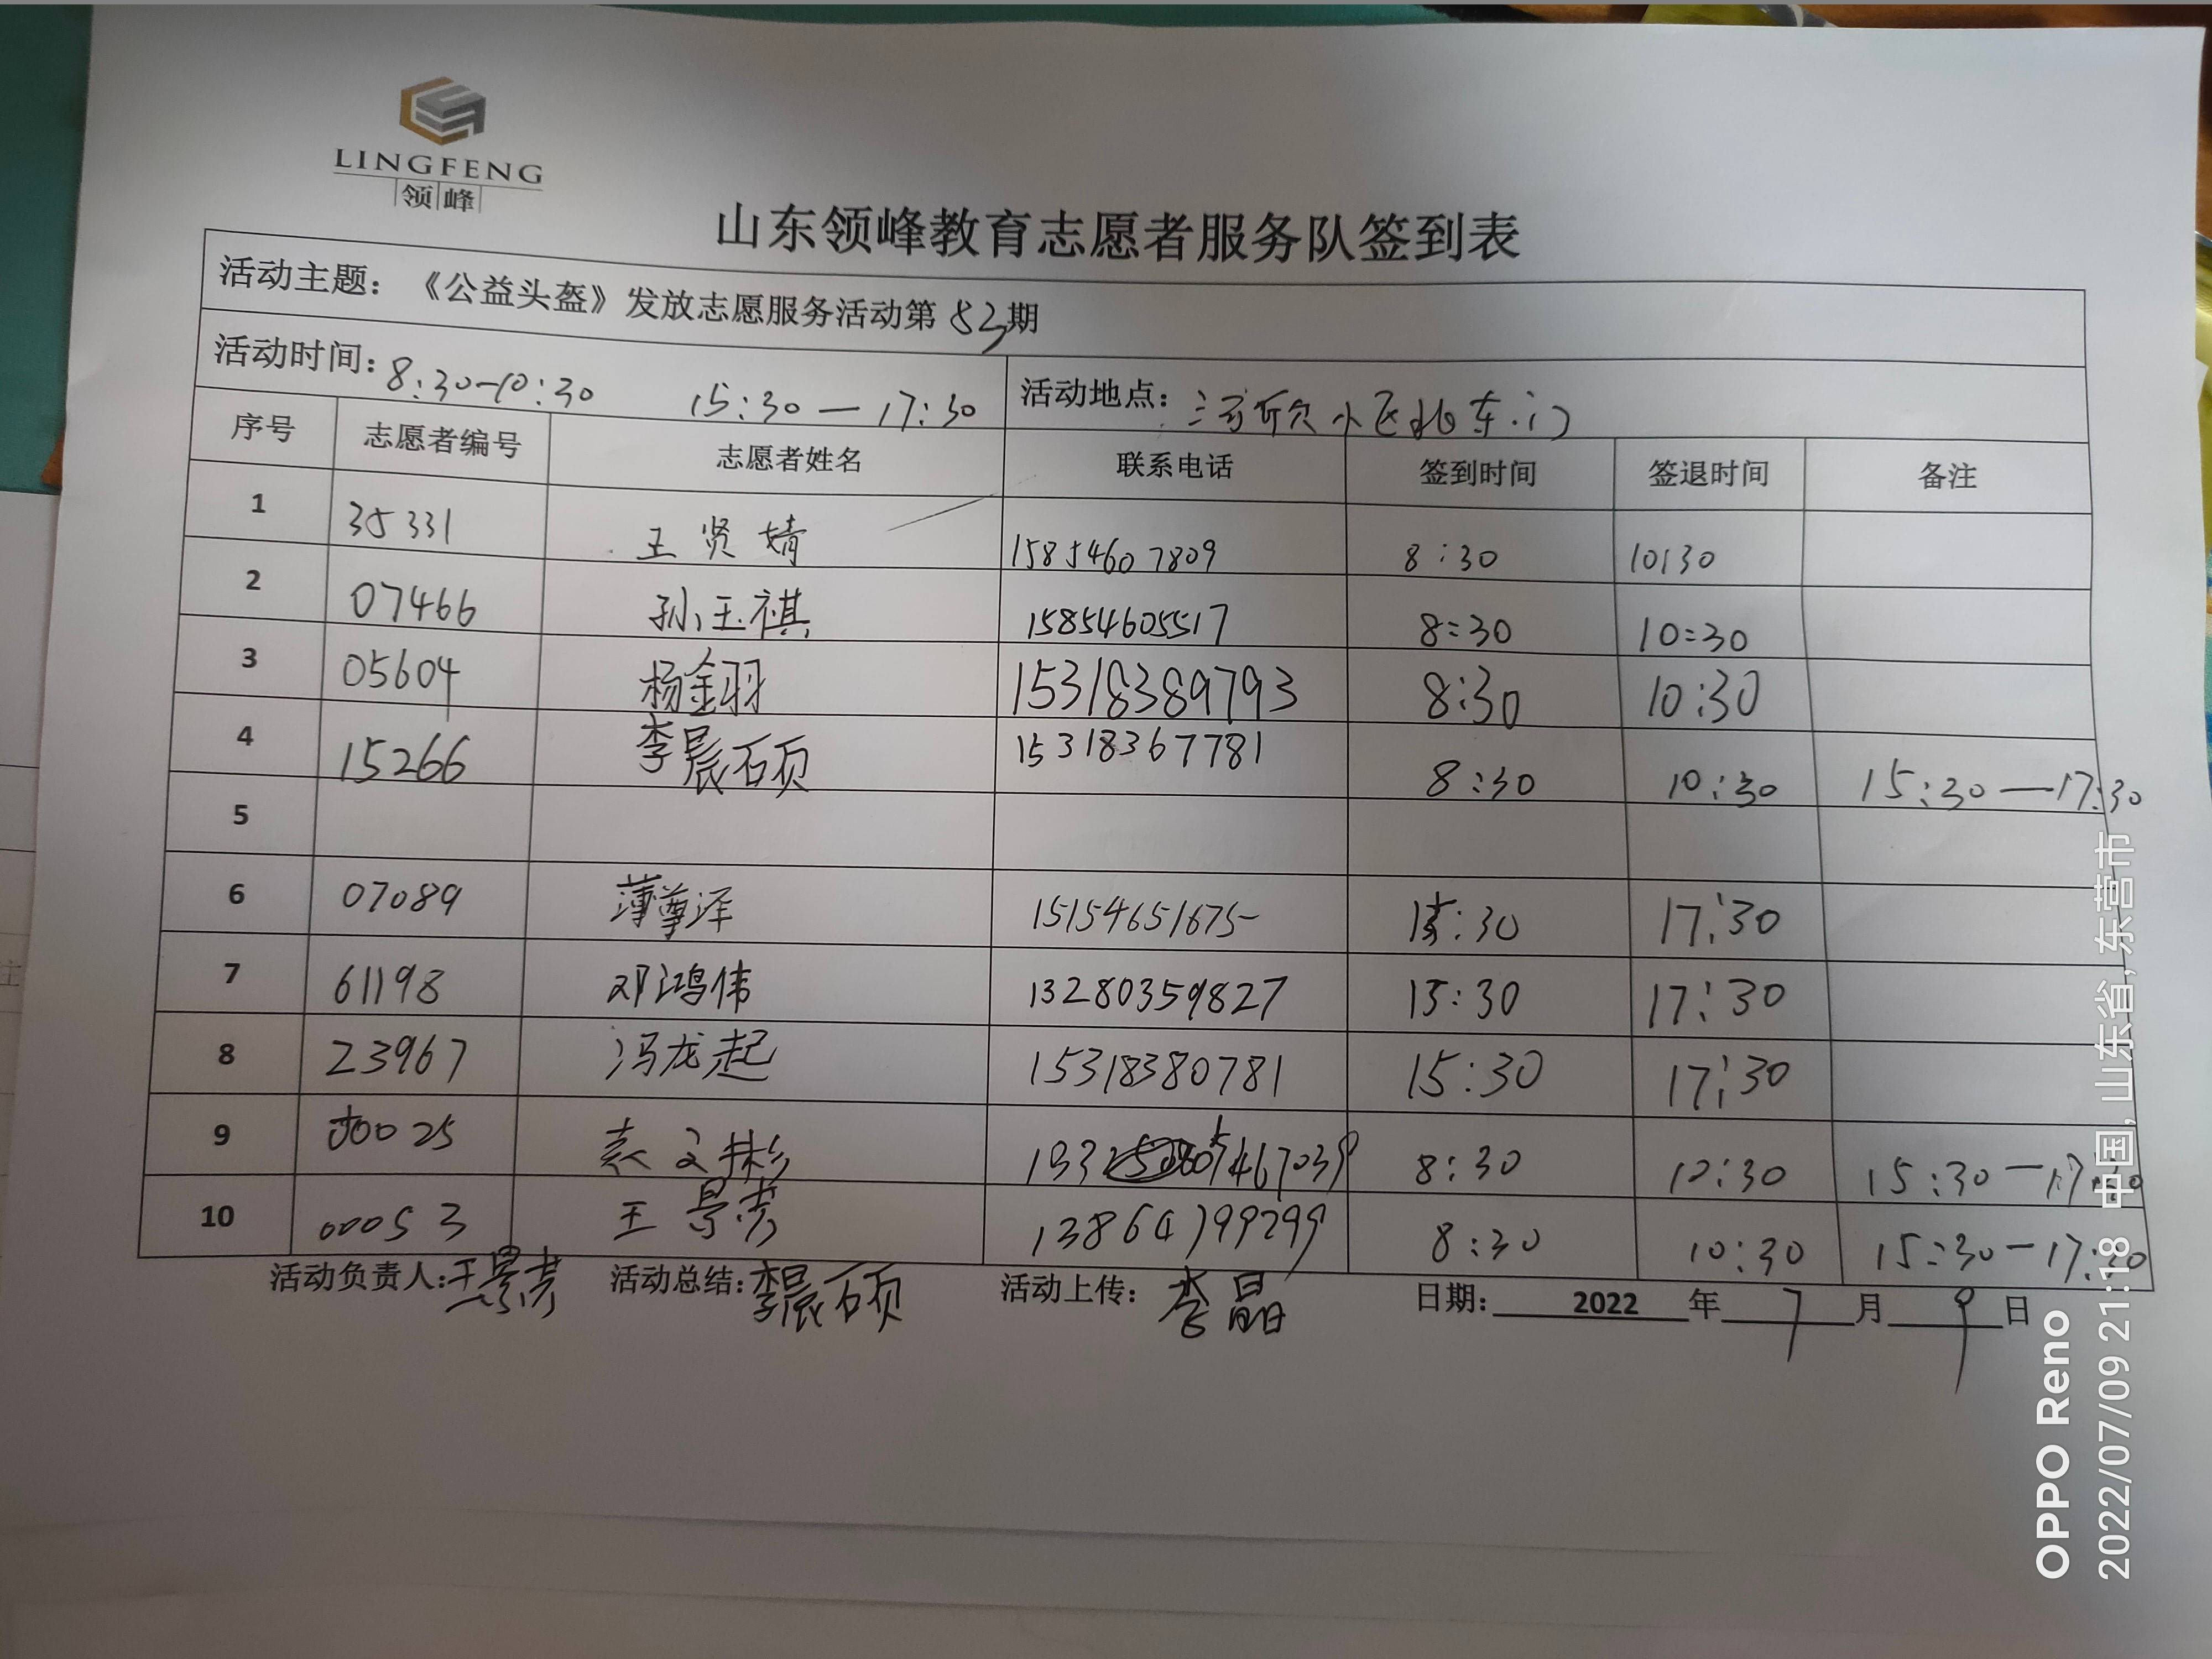 LINGFENG
领峰
山东领峰教育志愿者服务队签到表
活动主题：《公益头盔》发放志愿服务活动第53期
活动时间：8:30-10:30 15:30—17:30 活动地点：小区北东门
序号 志愿者编号 志愿者姓名 联系电话 签到时间 签退时间 备注
1 35331 王贤婧 15854607809 8:30 10:30
2 07466 孙玉祺 15854605517 8:30 10:30
3 05604 杨金羽 15318389793 8:30 10:30
4 15266 李晨硕 15318367781 8:30 10:30 15:30—17:30
5
6 07089 薄尊泽 15154651675 15:30 17:30
7 61198 邓鸿伟 13280359827 15:30 17:30
8 23967 冯龙起 15318380781 15:30 17:30
9 00025 袁文彬 8:30 15:30—17:30
10 00053 王景 13864799299 8:30 10:30 15:30—17:30
活动负责人：王景 活动总结：李晨硕 活动上传：李晶 日期： 2022 年 7 月 9 日
OPPO Reno
2022/07/09 21:18 中国, 山东省, 东营市